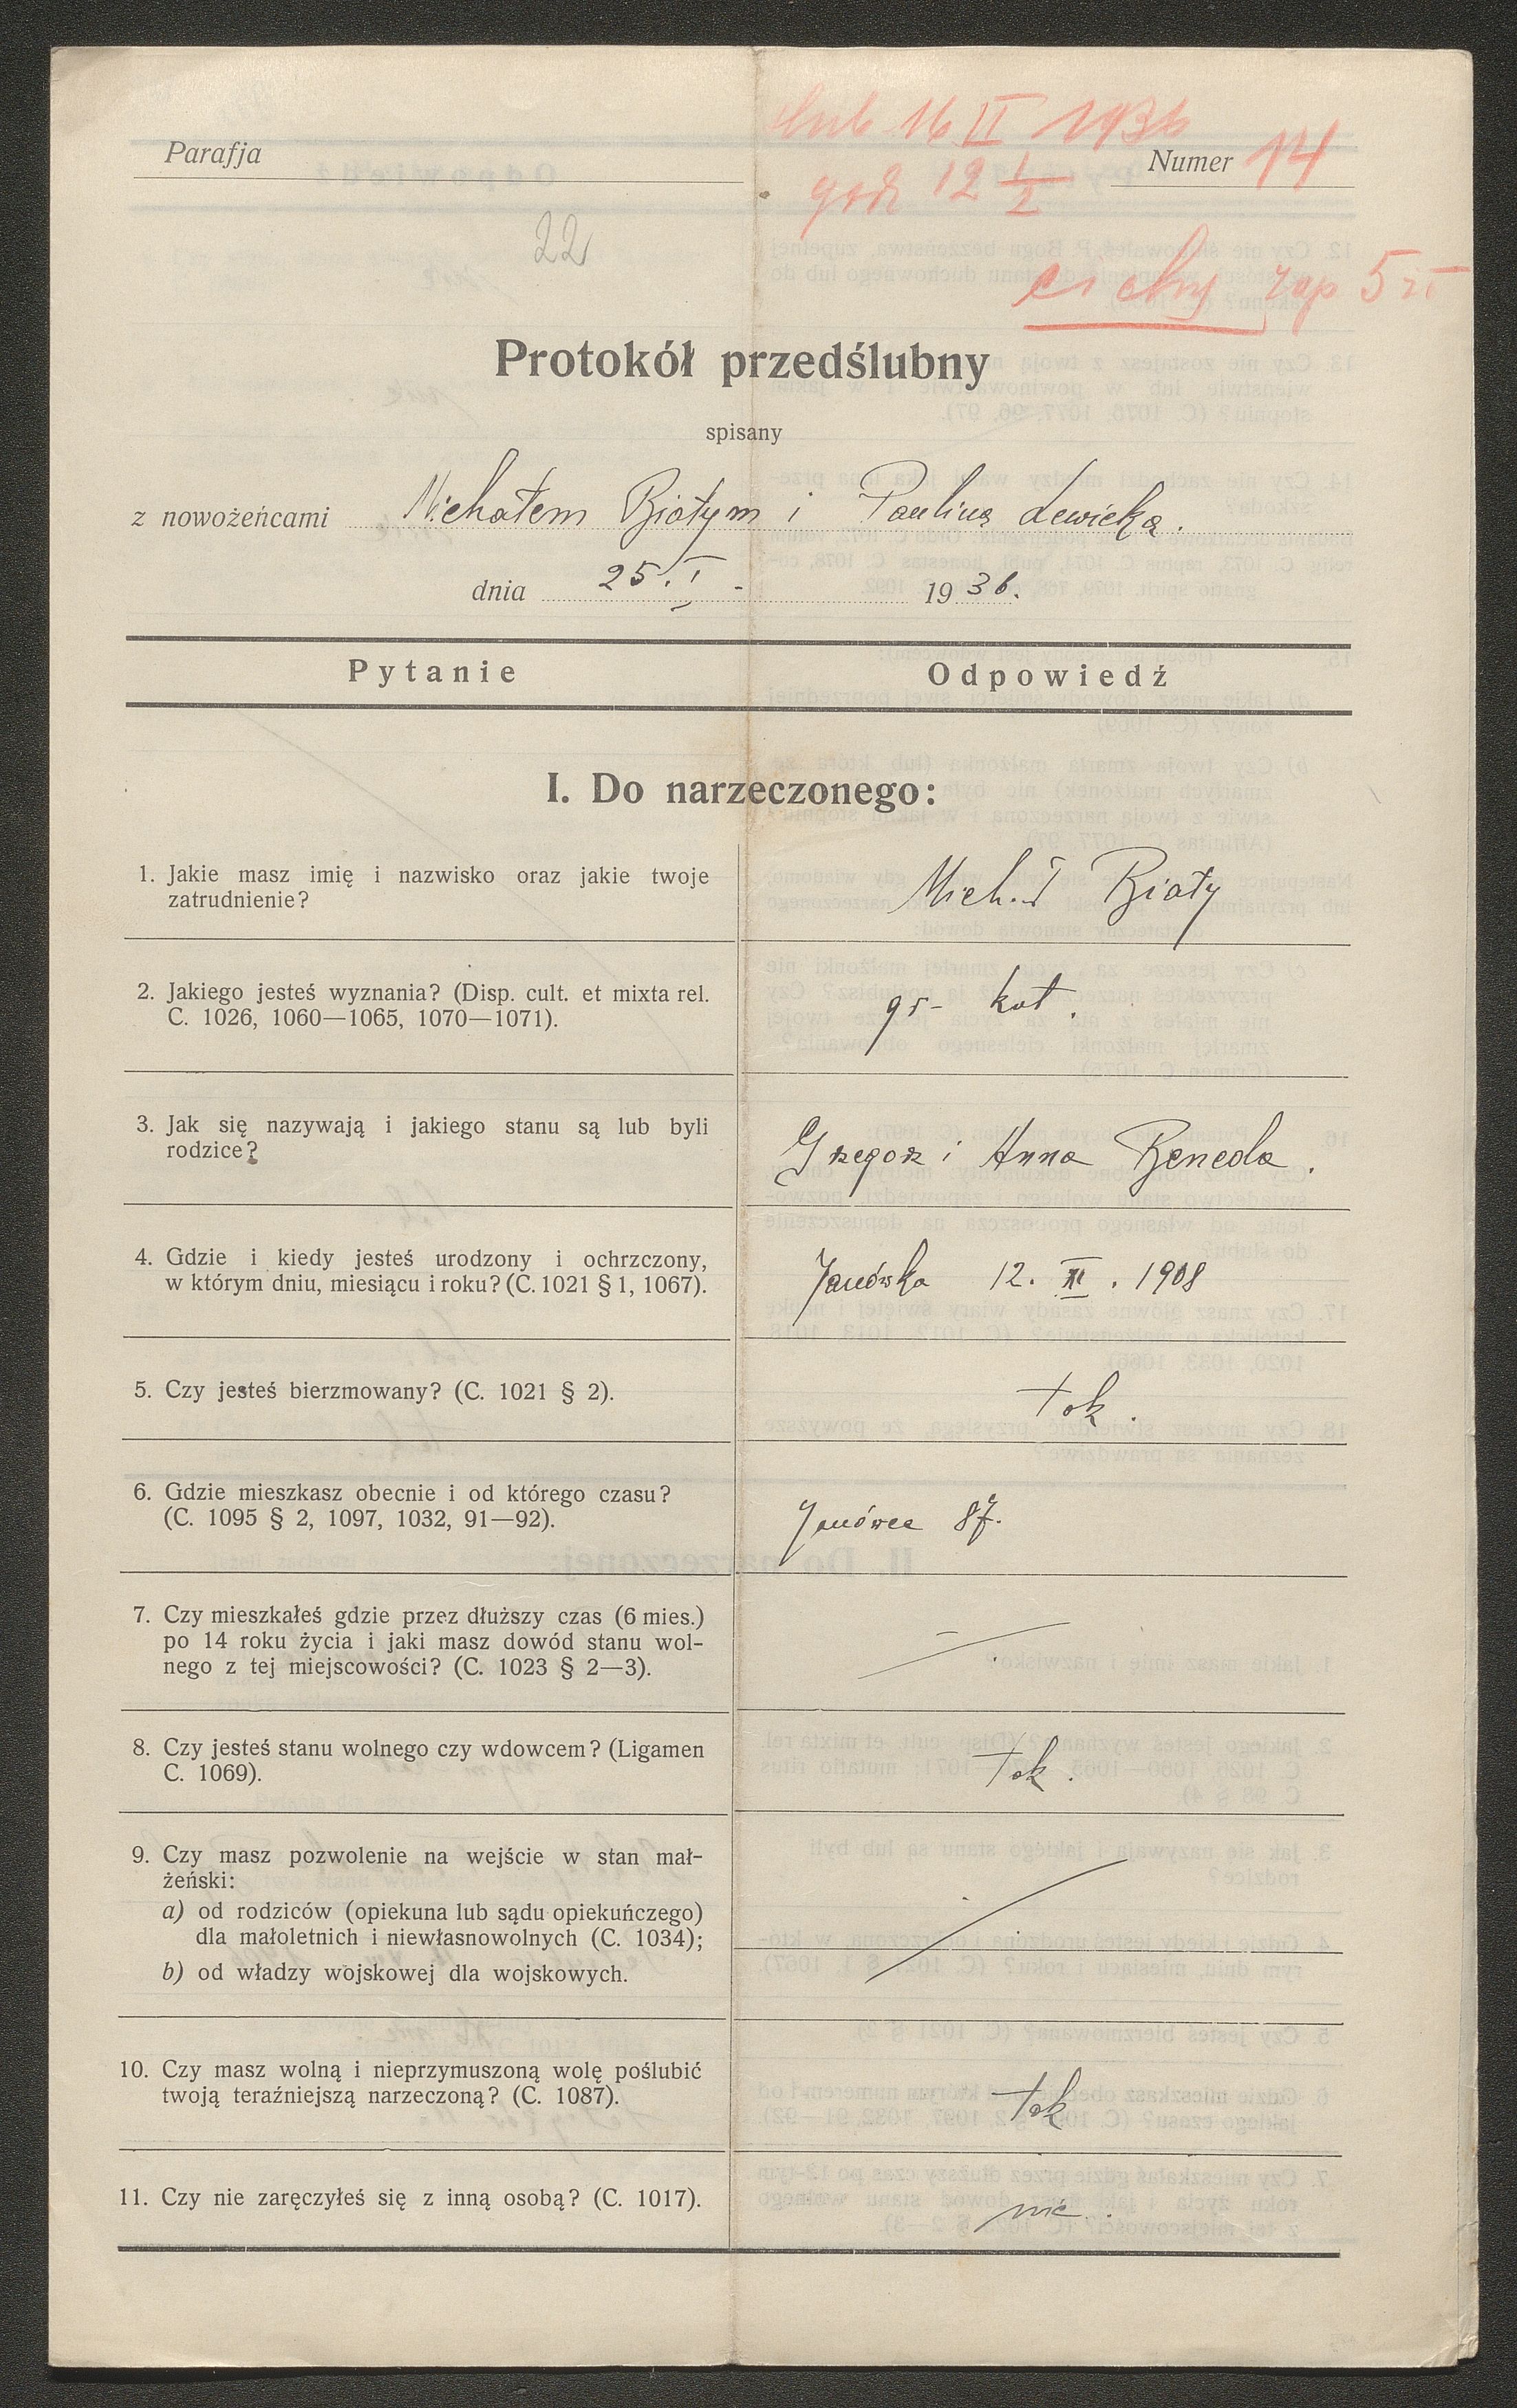 ślub 16 II 1936
Parafja
Numer 14
godz 12 1/2
22
cichy zap 5 zł
Protokół przedślubny
spisany
z nowożeńcami Michałem Białym i Pauliną Lewicką.
dnia 25. I - 1936.
Pytanie
Odpowiedź
I. Do narzeczonego:
1. Jakie masz imię i nazwisko oraz jakie twoje
zatrudnienie?
Michał Biały
2. Jakiego jesteś wyznania? (Disp. cult. et mixta rel.
C. 1026, 1060—1065, 1070—1071).
gr- kat.
3. Jak się nazywają i jakiego stanu są lub byli
rodzice?
Grzegorz i Anna Beneda.
4. Gdzie i kiedy jesteś urodzony i ochrzczony,
w którym dniu, miesiącu i roku? (C. 1021 § 1, 1067).
Janówka 12. XI. 1908
5. Czy jesteś bierzmowany? (C. 1021 § 2).
tak.
6. Gdzie mieszkasz obecnie i od którego czasu?
(C. 1095 § 2, 1097, 1032, 91—92).
Janówce 87.
7. Czy mieszkałeś gdzie przez dłuższy czas (6 mies.)
po 14 roku życia i jaki masz dowód stanu wol-
nego z tej miejscowości? (C. 1023 § 2—3).
8. Czy jesteś stanu wolnego czy wdowcem? (Ligamen
C. 1069).
tak.
9. Czy masz pozwolenie na wejście w stan mał-
żeński:
a) od rodziców (opiekuna lub sądu opiekuńczego)
dla małoletnich i niewłasnowolnych (C. 1034);
b) od władzy wojskowej dla wojskowych.
10. Czy masz wolną i nieprzymuszoną wolę poślubić
twoją teraźniejszą narzeczoną? (C. 1087).
tak
11. Czy nie zaręczyłeś się z inną osobą? (C. 1017).
nie.